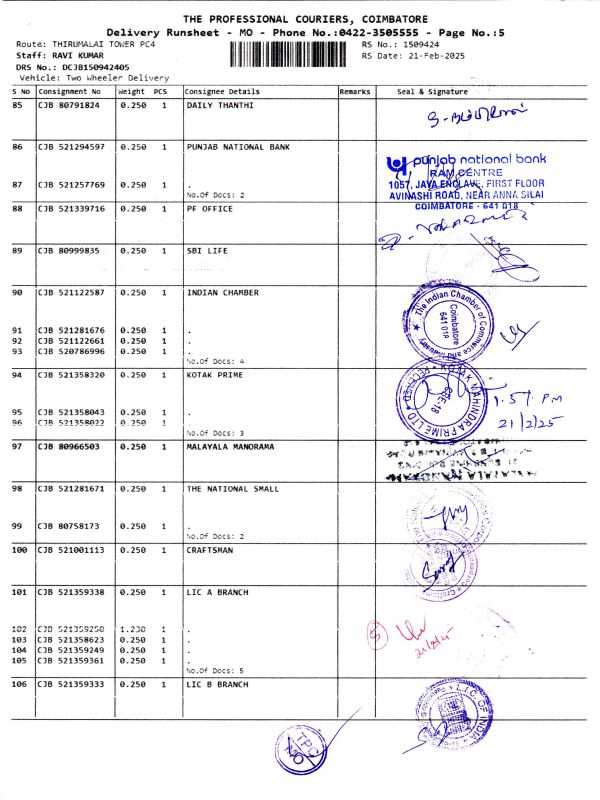 THE PROFESSIONAL COURIERS, COIMBATORE
Delivery Runsheet - MO - Phone No.:0422-3505555 - Page No.:5
Route: THIRUMALAI TOWER PC4 RS No.: 1509424
Staff: RAVI KUMAR RS Date: 21-Feb-2025
DRS No.: DCJB150942405
Vehicle: Two Wheeler Delivery
S No Consignment No Weight PCS Consignee Details Remarks Seal & Signature
85 CJB 80791824 0.250 1 DAILY THANTHI
86 CJB 521294597 0.250 1 PUNJAB NATIONAL BANK
punjab national bank
RAM CENTRE
87 CJB 521257769 0.250 1 .
1057, JAYA ENCLAVE, FIRST FLOOR
No.Of Docs: 2
AVINASHI ROAD, NEAR ANNA SILAI
COIMBATORE - 641 018
88 CJB 521339716 0.250 1 PF OFFICE
89 CJB 80999835 0.250 1 SBI LIFE
90 CJB 521122587 0.250 1 INDIAN CHAMBER
The Indian Chamber of Commerce and Industry
Coimbatore
641 018
91 CJB 521281676 0.250 1 .
92 CJB 521122661 0.250 1 .
93 CJB 520786996 0.250 1 .
No.Of Docs: 4
94 CJB 521358320 0.250 1 KOTAK PRIME
KOTAK MAHINDRA PRIME LTD
RECEIVED
CBE-18
1.51 PM
21/2/25
95 CJB 521358043 0.250 1 .
96 CJB 521358022 0.250 1 .
No.Of Docs: 3
97 CJB 80966503 0.250 1 MALAYALA MANORAMA
98 CJB 521281671 0.250 1 THE NATIONAL SMALL
99 CJB 80758173 0.250 1 .
No.Of Docs: 2
100 CJB 521001113 0.250 1 CRAFTSMAN
101 CJB 521359338 0.250 1 LIC A BRANCH
102 CJB 521359250 1.230 1 .
103 CJB 521358623 0.250 1 .
104 CJB 521359249 0.250 1 .
105 CJB 521359361 0.250 1 .
5
21/2/25
No.Of Docs: 5
106 CJB 521359333 0.250 1 LIC B BRANCH
L.I.C. OF INDIA
TPC
MO